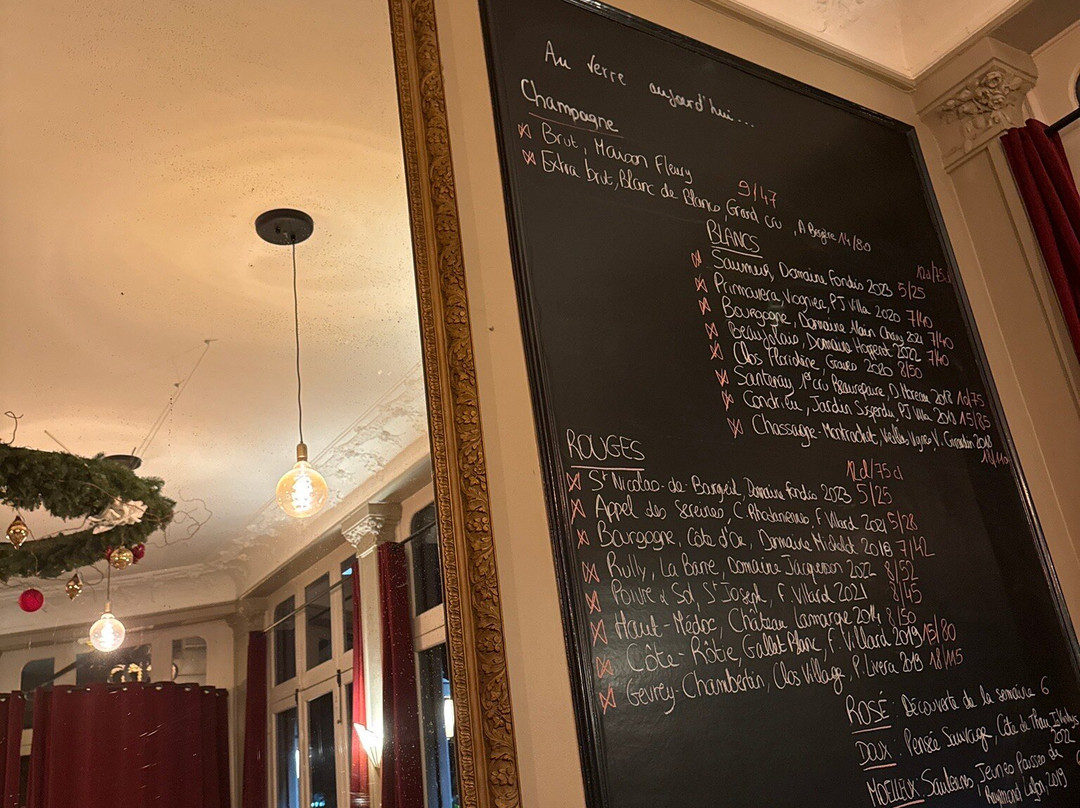 Au verre aujourd'hui...
Champagne
Brut, Maison Fleury 9/47
Extra brut, Blanc de Blancs, Grand cru, A Bergère 14/80
BLANCS
12cl/75cl
Saumur, Domaine Fondis 2023 5/25
Primavera, Viognier, PJ Villa 2020 7/40
Bourgogne, Domaine Alain Chavy 2021 7/40
Beaujolais, Domaine 2022 7/40
Clos Floridène, Graves 2020 8/50
Santenay 1er cru Beaurepaire, D. Moreau 2018 10/75
Condrieu, Jardin Suspendu PJ Villa 2019 15/85
Chassagne-Montrachet, Vieilles Vignes, V. Girardin 2018
ROUGES
12cl/75cl
St Nicolas de Bourgueil, Domaine Fondis 2023 5/25
Appel des Sereines, C. Rhodaniennes, F. Villard 2021 5/28
Bourgogne, Côte d'Or, Domaine Michelot 2018 7/42
Rully, La Barre, Domaine Jacqueson 2022 8/52
Poivre & Sol, St Joseph, F. Villard 2021 8/45
Haut-Médoc, Château Lamarque 2014 8/50
Côte-Rôtie, Gallet Blanc, F. Villard 2019 15/80
Gevrey-Chambertin, Clos Village, P. Livera 2019 18/115
ROSÉ: Découverte de la semaine 6
DOUX: Pensée Sauvage, Côte de Thau 2022
MOELLEUX: Sauternes Jeunes Pousses de
Raymond Lafon, 2019